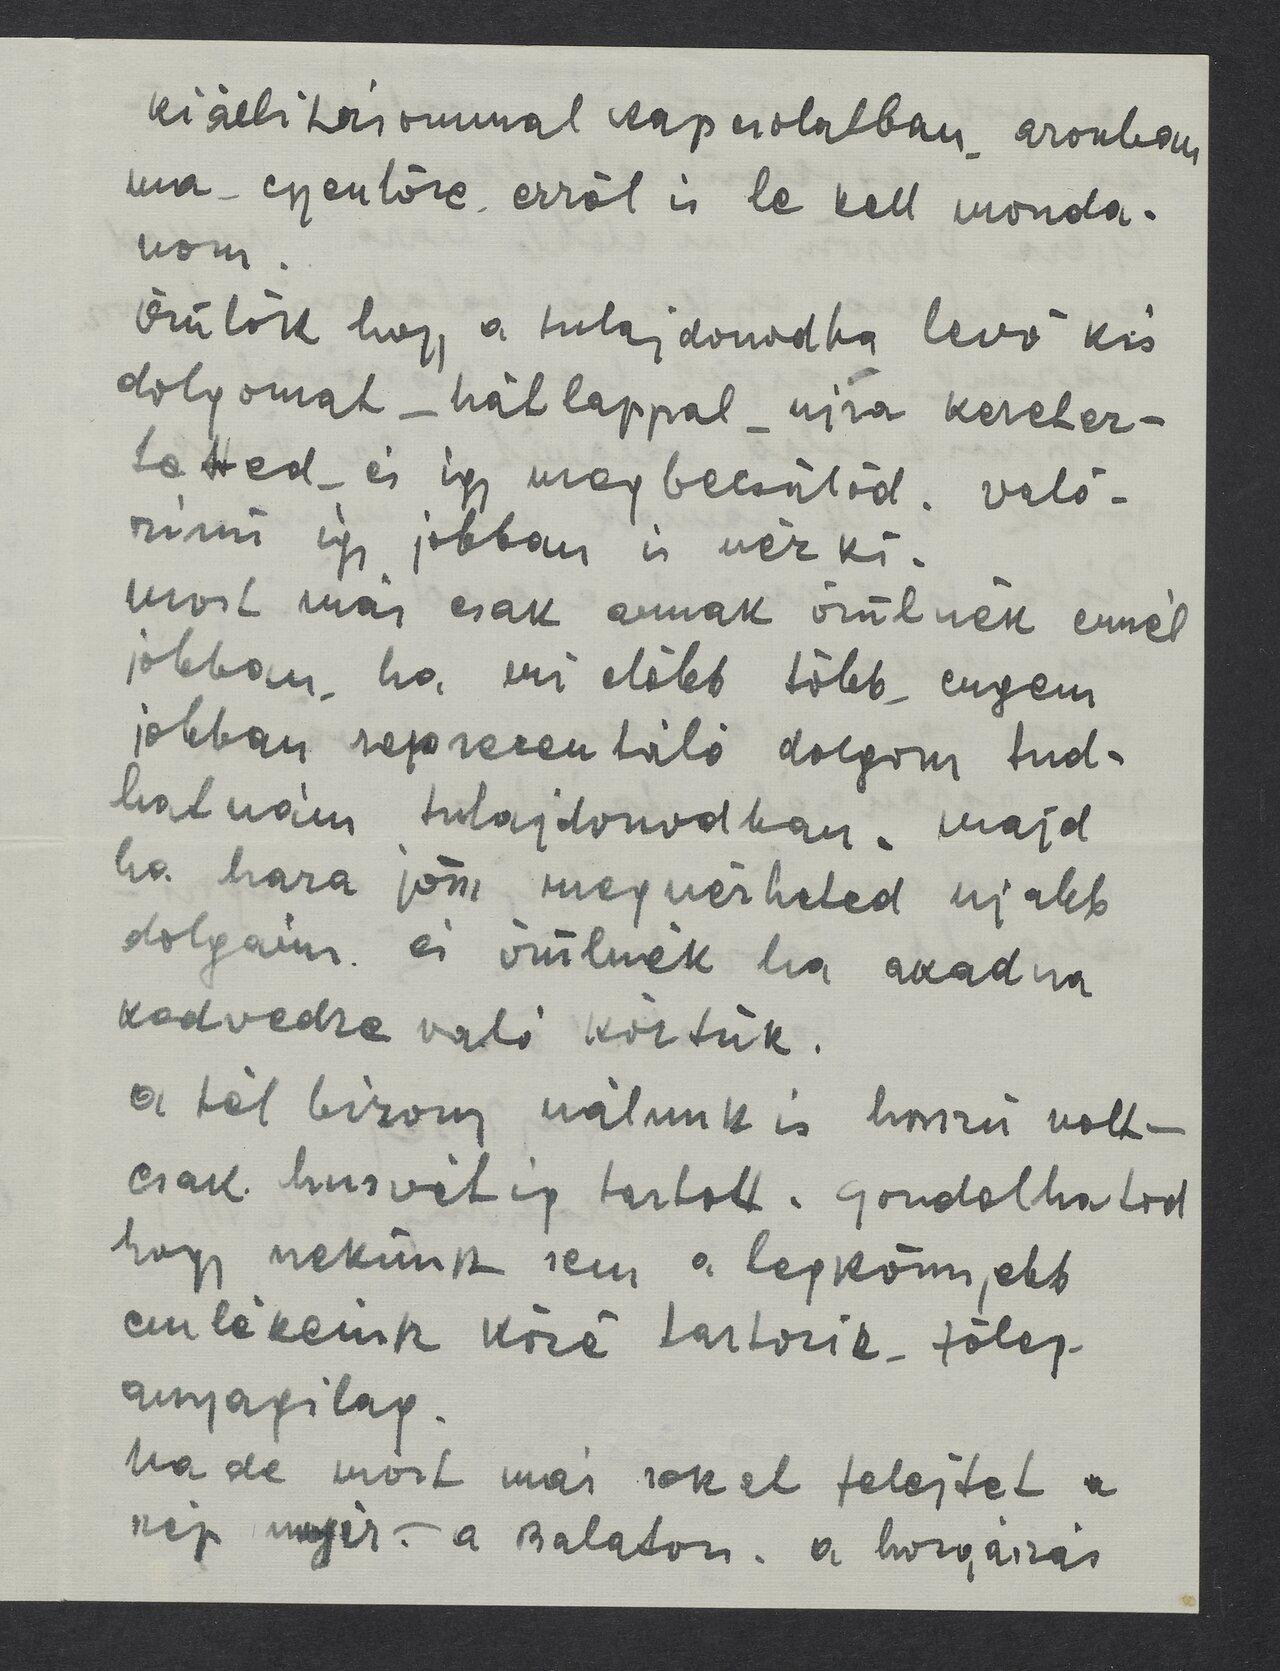 kiállitásommal kapcsolatban_ azonban
ma_ egyenlőre. erről is le kell monda-
nom.
Örülök hogy a tulajdonodba levő kis
dolgomat _ hátlappal _ ujra keretez-
tetted_ és igy megbecsülöd. való-
szinü igy jobban is néz ki.
most már csak annak örülnék ennél
jobban_ ha mi előbb több_ engem
jobban reprezentáló dolgom tud-
hatnám tulajdonodban. majd
ha haza jössz megnézheted ujabb
dolgaim. és örülnék ha akadna
kedvedre való köztük.
a tél bizony nálunk is hosszú volt —
csak husvétig tartott. gondolhatod
hogy nekünk sem a legkönnyebb
emlékeink közé tartozik_ főleg
anyagilag.
na de most már sok el felejtet a
szép nyár. — a Balaton. a horgászás